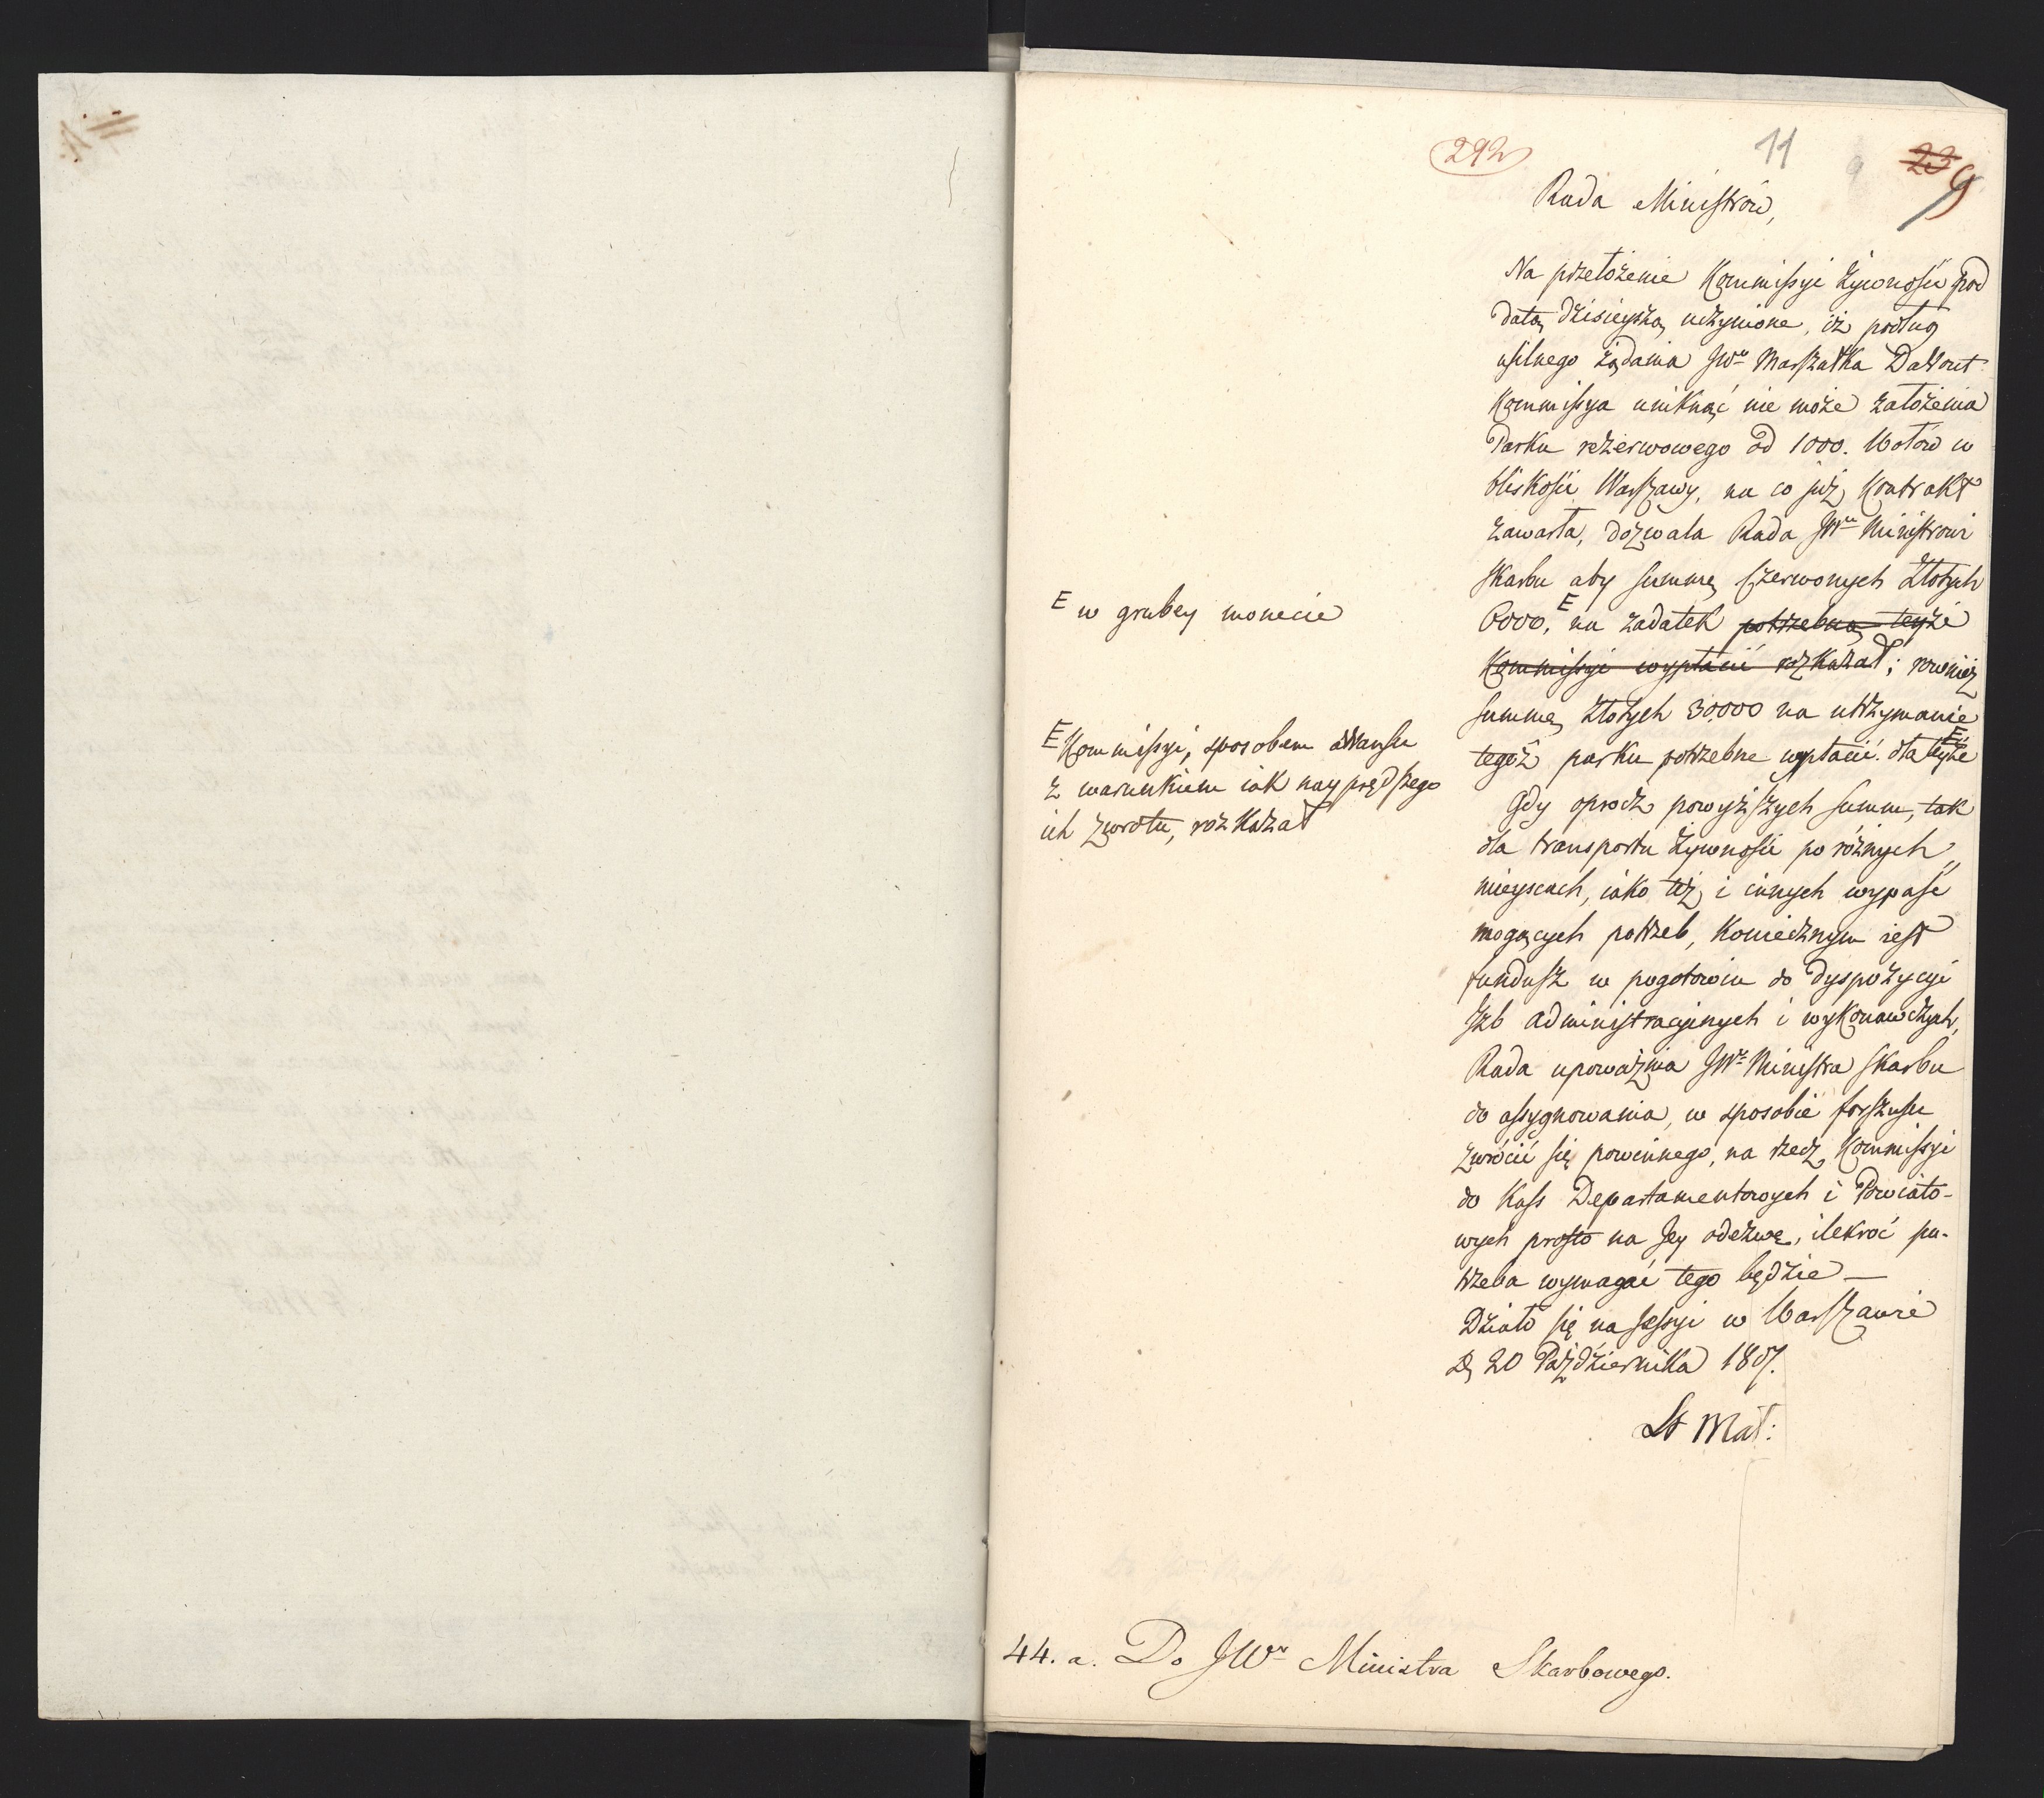 292
11
9
23
9
Rada Ministrów,
Na przełożenie Kommissyi Żywności pod
datą dzisieyszą uczynione, iż podług
usilnego żądania JWo Marszałka Davout
Kommissya uniknąć nie może założenia
Parku rezerwowego od 1000. Wołów w
bliskości Warszawy, na co już kontrakt
zawarła, dozwala Rada JWu Ministrowi
Skarbu aby summę czerwonych złotych
6000, E na zadatek potrzebną teyże
Kommissyi wypłacić rozkazał; rownież
summę złotych 30,000 na utrzymanie
tegoż parku potrzebne wypłacić dla teyże E
Gdy oprocz powyższych summ, tak
dla transportu żywności po różnych
mieyscach, iako też i innych wypaść
mogących potrzeb, koniecznym iest
fundusz w pogotowiu do dyspozycyi
Izb administracyinych i wykonawczych,
Rada upoważnia JWo Ministra Skarbu
do assygnowania, w sposobie forszusu
zwrócić się powinnego, na rzecz Kommissyi
do Kass Departamentowych i Powiato-
wych prosto na Jey odezwę, ilekroć po-
trzeba wymagać tego będzie —
Działo się na Sessyi w Warszawie
D, 20 Października 1807.
St Mał:
E w grubey monecie
E Kommissyi, sposobem awansu
z warunkiem iak nayprędszego
ich zwrotu, rozkazał
44. a. Do JWo Ministra Skarbowego.